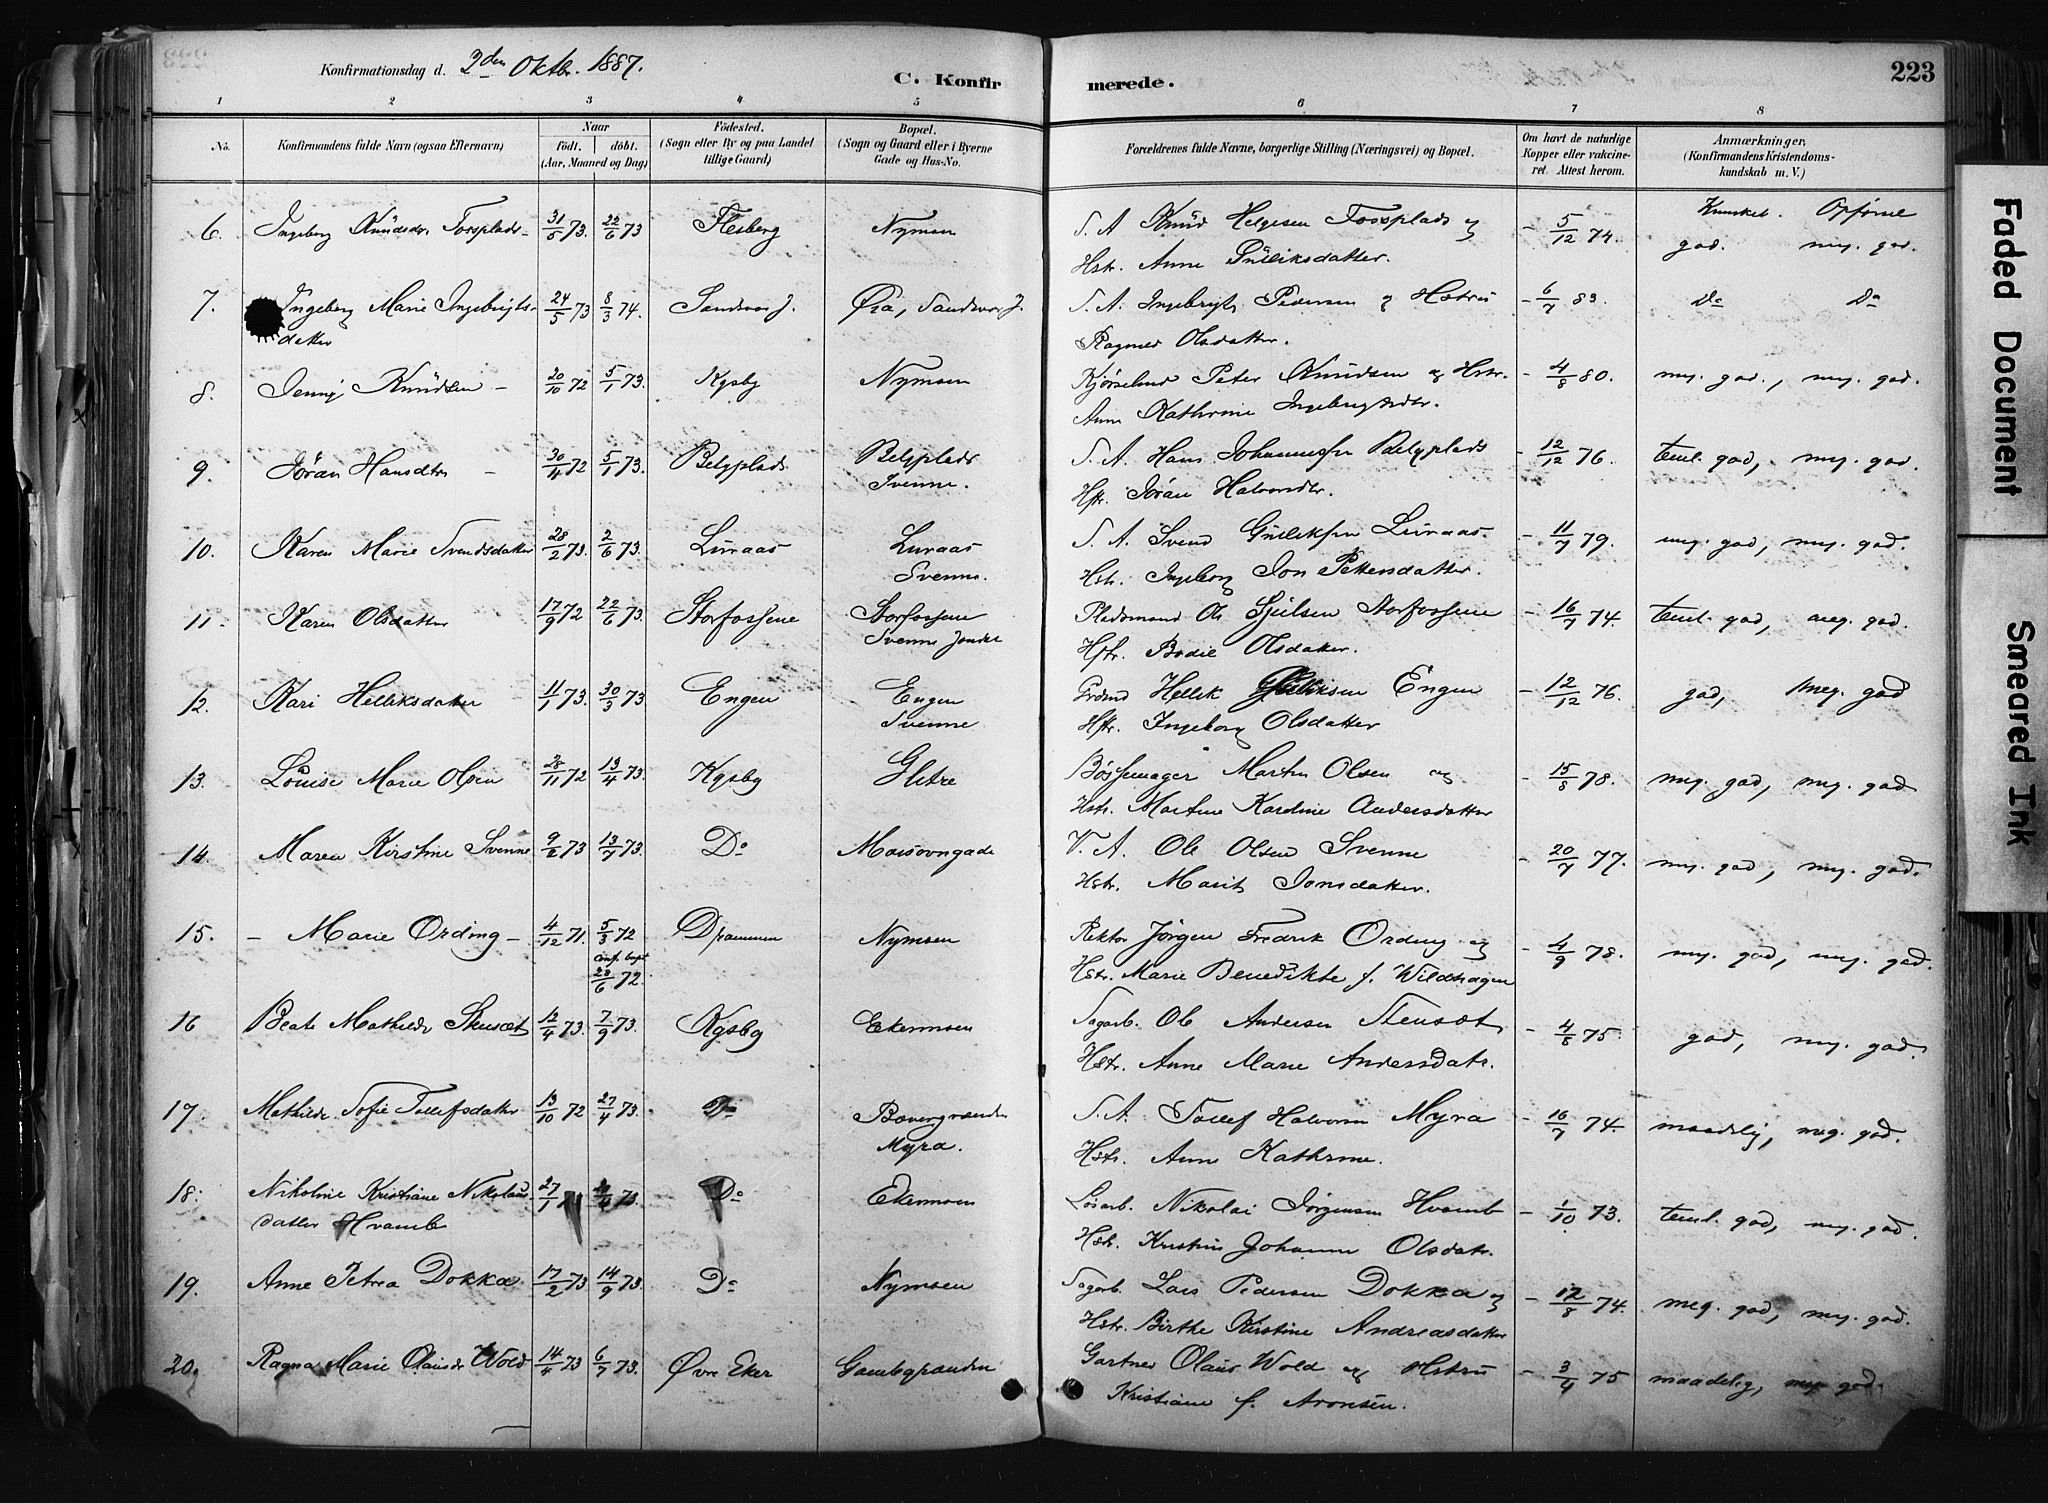 Konfirmationsdag d. 2den Oktbr. 1887.
C. Konfirmerede.
223
1 2 3 4 5 6 7 8
No.
Konfirmandens fulde Navn (ogsaa Efternavn)
Naar
födt. döbt.
(Aar, Maaned og Dag)
Födested.
(Sogn eller By og paa Landet
tillige Gaard)
Bopæl.
(Sogn og Gaard eller i Byerne
Gade og Hus-No.
Forældrenes fulde Navne, borgerlige Stilling (Næringsvei) og Bopæl.
Om havt de naturlige
Kopper eller vakcine-
ret. Attest herom.
Anmærkninger,
(Konfirmandens Kristendoms-
kundskab m. V.)
Kunsket. Opførsel
6. Ingeborg Knudsdr. Fossplads - 31/5 73. 22/6 73 Flesberg Nymoen S. A Knud Helgesen Fossplads og - 5/12 74. god. meg. god.
Hstr. Anne Gulliksdatter.
7. Ingeborg Marie Ingebrigts- 24/5 73 8/3 74. Sandsvær J. Øra, Sandsvær J. S. A. Ingebrigt Pedersen og Hstru - 6/7 83. Do Do
datter Ragnild Olsdatter.
8. Jenny Knudsen - 20/10 72 5/1 73. Kgsbg Nymoen Kjørselmd Peter Knudsen og Hstr. - 4/8 80. meg. god., meg. god.
Anne Kathrine Ingebrigtsdtr.
9. Jöran Hansdtr - 30/4 72 5/1 73. Belgplads Belgplads S. A. Hans Johannessen Belgplads - 12/12 76. teml. god, meg. god.
Svenne. Hstr. Jöran Halvorsdtr.
10. Karen Marie Svendsdatter 28/2 73. 2/6 73. Luraas Luraas S. A. Svend Gulliksen Luraas - 11/7 79. meg. god, meg. god.
Svenne. Hstr. Ingeborg Jon Pettersdatter.
11. Karen Olsdatter 17/9 72 22/6 73. Storfossene Storfossene Pladsmand Ole Gjulsen Storfossene - 16/7 74. teml. god, meg. god.
Svenne Jondal Hstr. Bodil Olsdatter.
12. Kari Helliksdatter 11/1 73. 30/3 73 Engen Engen Hellik Gulliksen Engen - 12/12 76. god, meg. god
Svenne Hstr. Ingeborg Olsdatter
13. Louise Marie Olsen 28/11 72 13/4 73. Kgsbg Glitre Bøssemager Martin Olsen og - 15/8 78. meg. god, meg. god
Hstr. Martine Karoline Andersdatter
14. Maren Kirstine Svenne 9/2 73 13/7 73. Do Masovngade V. A. Ole Olsen Svenne - 20/7 77. meg. god, meg. god.
Hstr. Marit Jonsdatter.
15. - Marie Ording - 4/12 71. 5/3 72 Drammen Nymoen Rektor Jörgen Fredrik Ording og - 4/9 78. meg. god, meg. god.
conf. bapt. 28/6 72. Hstr. Marie Benedikte f. Wildhagen
16 Beate Mathilde Stensæt 12/4 73. 7/9 73. Kgsbg Ekermoen Sagarb. Ole Andersen Stensæt - 4/8 75. god, meg. god.
Hstr. Anne Marie Andersdatr.
17. Mathilde Sofie Tollefsdatter 13/10 72 27/4 73. Do Bævergrænden S. A. Tollef Halvorsen Myra - 16/7 74. maadelig, meg. god.
Myra. Hstr. Anne Kathrine.
18. Nikoline Kristiane Nikolaus- 27/1 73. Do Ekermoen Løsarb. Nikolai Jörgensen Hvamb - 1/10 73. teml. god, meg. god.
datter Hvamb Hstr. Kristine Johanne Olsdatr.
19. Anne Petrea Dokka 17/2 73 14/9 73. Do Nymoen Sagarb. Lars Pedersen Dokka og - 12/8 74. meg. god, meg. god.
Hstr. Birthe Kirstine Andreasdatter
20. Ragna Marie Olausdr Wold 14/4 73 6/7 73. Øvre Eker Gombegranden Gartner Olaus Wold og Hstru - 3/4 75 maadelig, meg god.
Kristiane f. Aronsen.
Faded Document
Smeared Ink